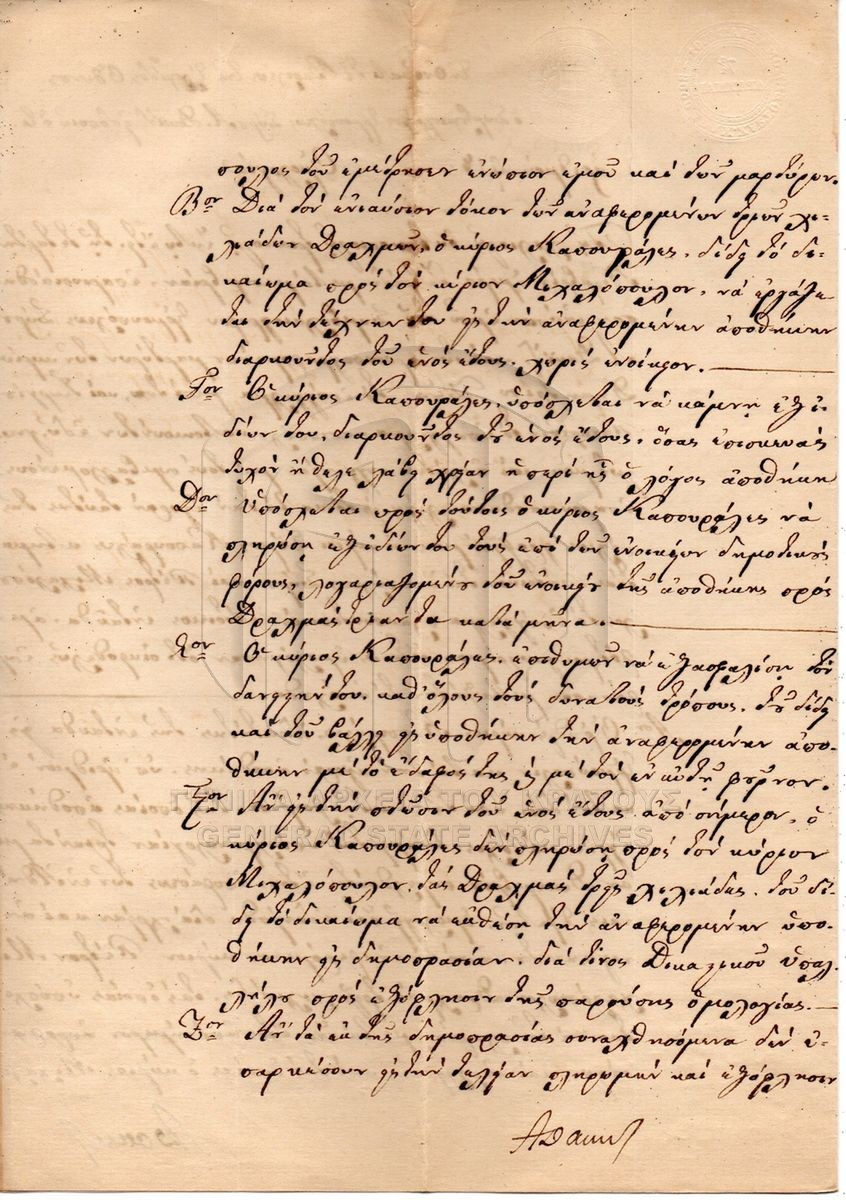 πουλος τοῦ ἐμέτρησεν ἐνώπιον ἐμοῦ καὶ τῶν μαρτύρων.
Βον Διὰ τὸν ἐνιαύσιον τόκον τῶν ἀναφερομένων τριῶν χι-
λιάδων Δραχμῶν, ὁ κύριος Καπουράλης, δίδει τὸ δι-
καίωμα πρὸς τὸν κύριον Μιχαλόπουλον, νὰ ἐργάζε
ται τὴν τέχνην του εἰς τὴν ἀναφερομένην ἀποθήκην
διαρκοῦντος τοῦ ἑνὸς ἔτους, χωρὶς ἐνοίκιον.
Γον Ὁ κύριος Καπουράλης, ὑπόσχεται νὰ κάμνῃ ἐξ ἰ-
δίων του, διαρκοῦντος τοῦ ἑνὸς ἔτους, ὅσας ἐπισκευὰς
τυχὸν ἤθελε λάβῃ χρείαν ἡ περὶ ἧς ὁ λόγος ἀποθήκη
Δον Ὑπόσχεται πρὸς τούτοις ὁ κύριος Καπουράλης νὰ
πληρώσῃ ἐξ ἰδίων του τοὺς ἐπὶ τῶν ἐνοικίων δημοτικοὺς
φόρους, λογαριαζομένου τοῦ ἐνοικίου τῆς ἀποθήκης πρὸς
Δραχμὰς τριάντα κατὰ μῆνα.
Εον Ὁ κύριος Καπουράλης, ἐπιθυμῶν νὰ ἐξασφαλίσῃ τὸν
δανειστήν του, καθ' ὅλους τοὺς δυνατοὺς τρόπους, τοῦ δίδει
καὶ τοῦ βάλλει εἰς ὑποθήκην τὴν ἀναφερομένην ἀπο-
θήκην μὲ τὸ ἔδαφός της καὶ μὲ τὸν ἐν αὐτῇ φοῦρνον.
ΣΤον Ἂν εἰς τὴν πτῶσιν τοῦ ἑνὸς ἔτους ἀπὸ σήμερον, ὁ
κύριος Καπουράλης δὲν πληρώσῃ πρὸς τὸν κύριον
Μιχαλόπουλον, τὰς Δραχμὰς τρεῖς χιλιάδας, τοῦ δί-
δει τὸ δικαίωμα νὰ ἐκθέσῃ τὴν ἀναφερομένην ὑπο-
θήκην εἰς δημοπρασίαν, διά τινος Δικαστικοῦ ὑπαλ-
λήλου πρὸς ἐξόφλησιν τῆς παρούσης ὁμολογίας.
Ζον Ἂν τὰ ἐκ τῆς δημοπρασίας συναχθησόμενα δὲν ἐ-
παρκέσουν εἰς τὴν τελείαν πληρωμὴν καὶ ἐξόφλησιν
ΓΕΝΙΚΑ ΑΡΧΕΙΑ ΤΟΥ ΚΡΑΤΟΥΣ
GENERAL STATE ARCHIVES